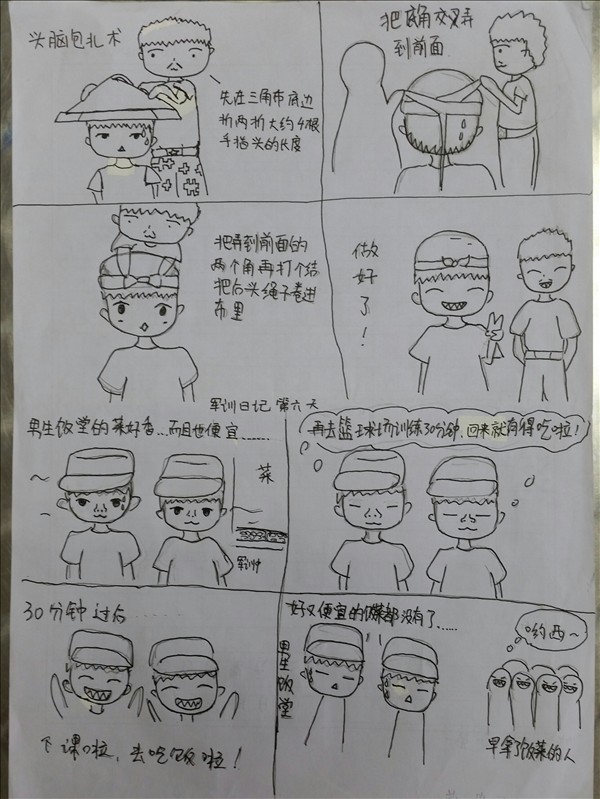 头脑包扎术
先在三角布底边
折两折大约4根
手指头的长度
把底角交叉弄
到前面
把弄到前面的
两个角再打个结
把后头绳子卷进
布里
做好了！
军训日记 第六天
男生饭堂的菜好香...而且也便宜......
菜
军训中
再去篮球场训练30分钟,回来就有得吃啦！
30分钟过后......
下课啦,去吃饭啦！
好又便宜的饭菜都没有了......
男生饭堂
哟西~
早拿了饭菜的人